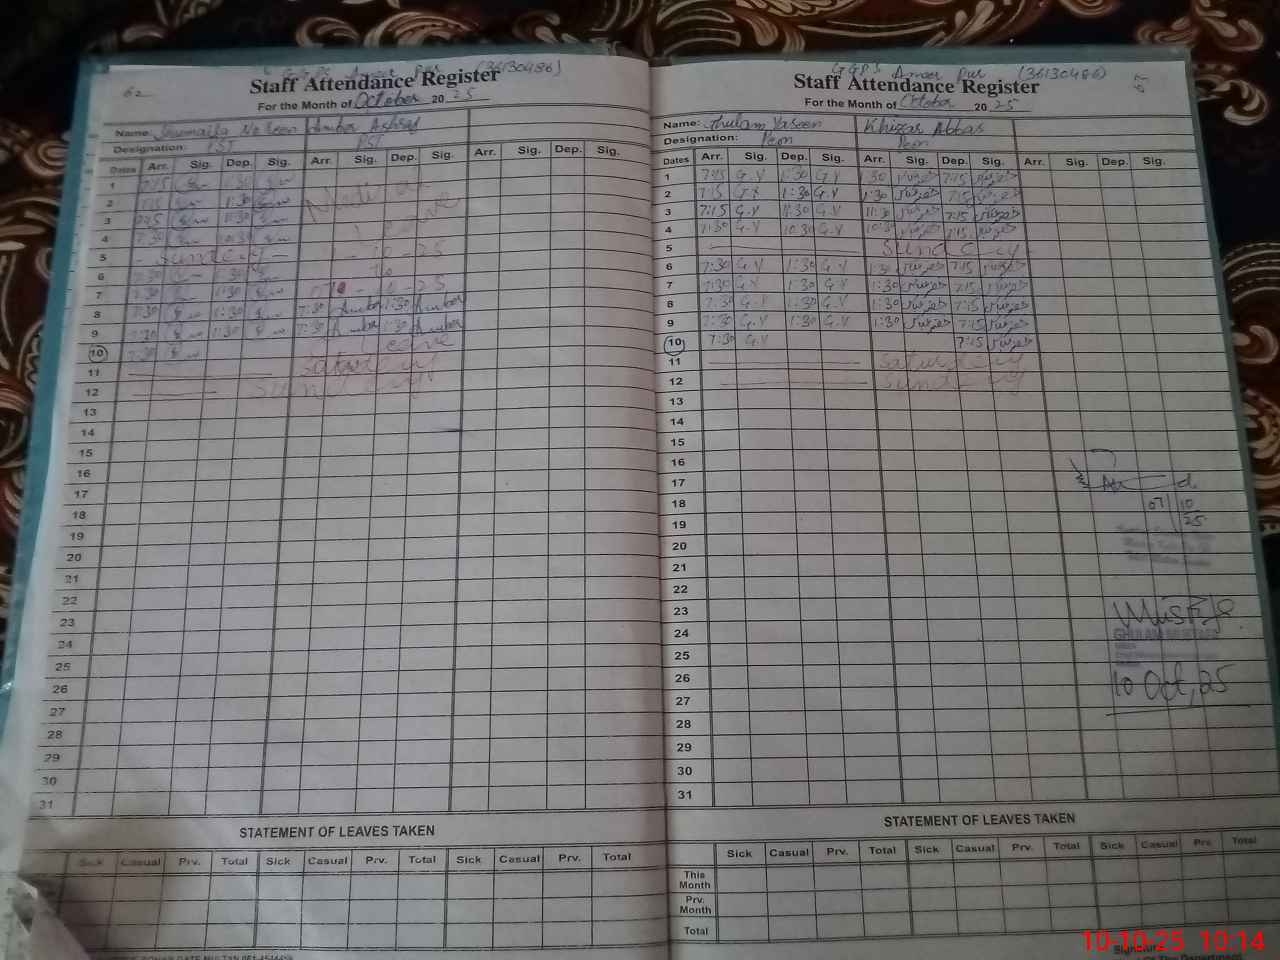 Ameer Pur (36130486)
Staff Attendance Register
For the Month of October 2025
Name: Noreen Amber Ashraf
Designation: PST PST
Dates Arr. Sig. Dep. Sig. Arr. Sig. Dep. Sig. Arr. Sig. Dep. Sig.
1 7:15 1:30
2 7:15 1:30
3 11:30
4 7:30 10:30 Leave
5 Sunday 1-10-25
6 7:30 1:30 To
7 7:30 1:30 10-25
8 7:30 1:30 7:30 Amber 1:30 Amber
9 7:30 1:30 7:30 Amber 1:30 Amber
10 7:30 Leave
11 Saturday
12 Sunday
13
14
15
16
17
18
19
20
21
22
23
24
25
26
27
28
29
30
31
STATEMENT OF LEAVES TAKEN
Sick Casual Prv. Total Sick Casual Prv. Total Sick Casual Prv. Total
GGPS Ameer Pur (36130486)
Staff Attendance Register
For the Month of October 2025
Name: Ghulam Yaseen Khizar Abbas
Designation: Peon Peon
Dates Arr. Sig. Dep. Sig. Arr. Sig. Dep. Sig. Arr. Sig. Dep. Sig.
1 7:15 G.Y 1:30 G.Y 1:30 7:15
2 7:15 G.Y 1:30 G.Y 1:30 7:15
3 7:15 G.Y 11:30 G.Y 11:30 7:15
4 7:30 G.Y 10:30 G.Y 10:30 7:15
5 Sunday
6 7:30 G.Y 1:30 G.Y 1:30 7:15
7 7:30 G.Y 1:30 G.Y 1:30 7:15
8 7:30 G.Y 1:30 G.Y 1:30 7:15
9 7:30 G.Y 1:30 G.Y 1:30 7:15
10 7:30 G.Y 7:15
11 Saturday
12 Sunday
13
14
15
16
17
18
19
20
21
22
23
24
25
26
27
28
29
30
31
07 10
25
GHULAM MUSTAFA
10 Oct, 25
STATEMENT OF LEAVES TAKEN
Sick Casual Prv. Total Sick Casual Prv. Total Sick Casual Prv. Total
This Month
Prv. Month
Total
10-10-25 10:14